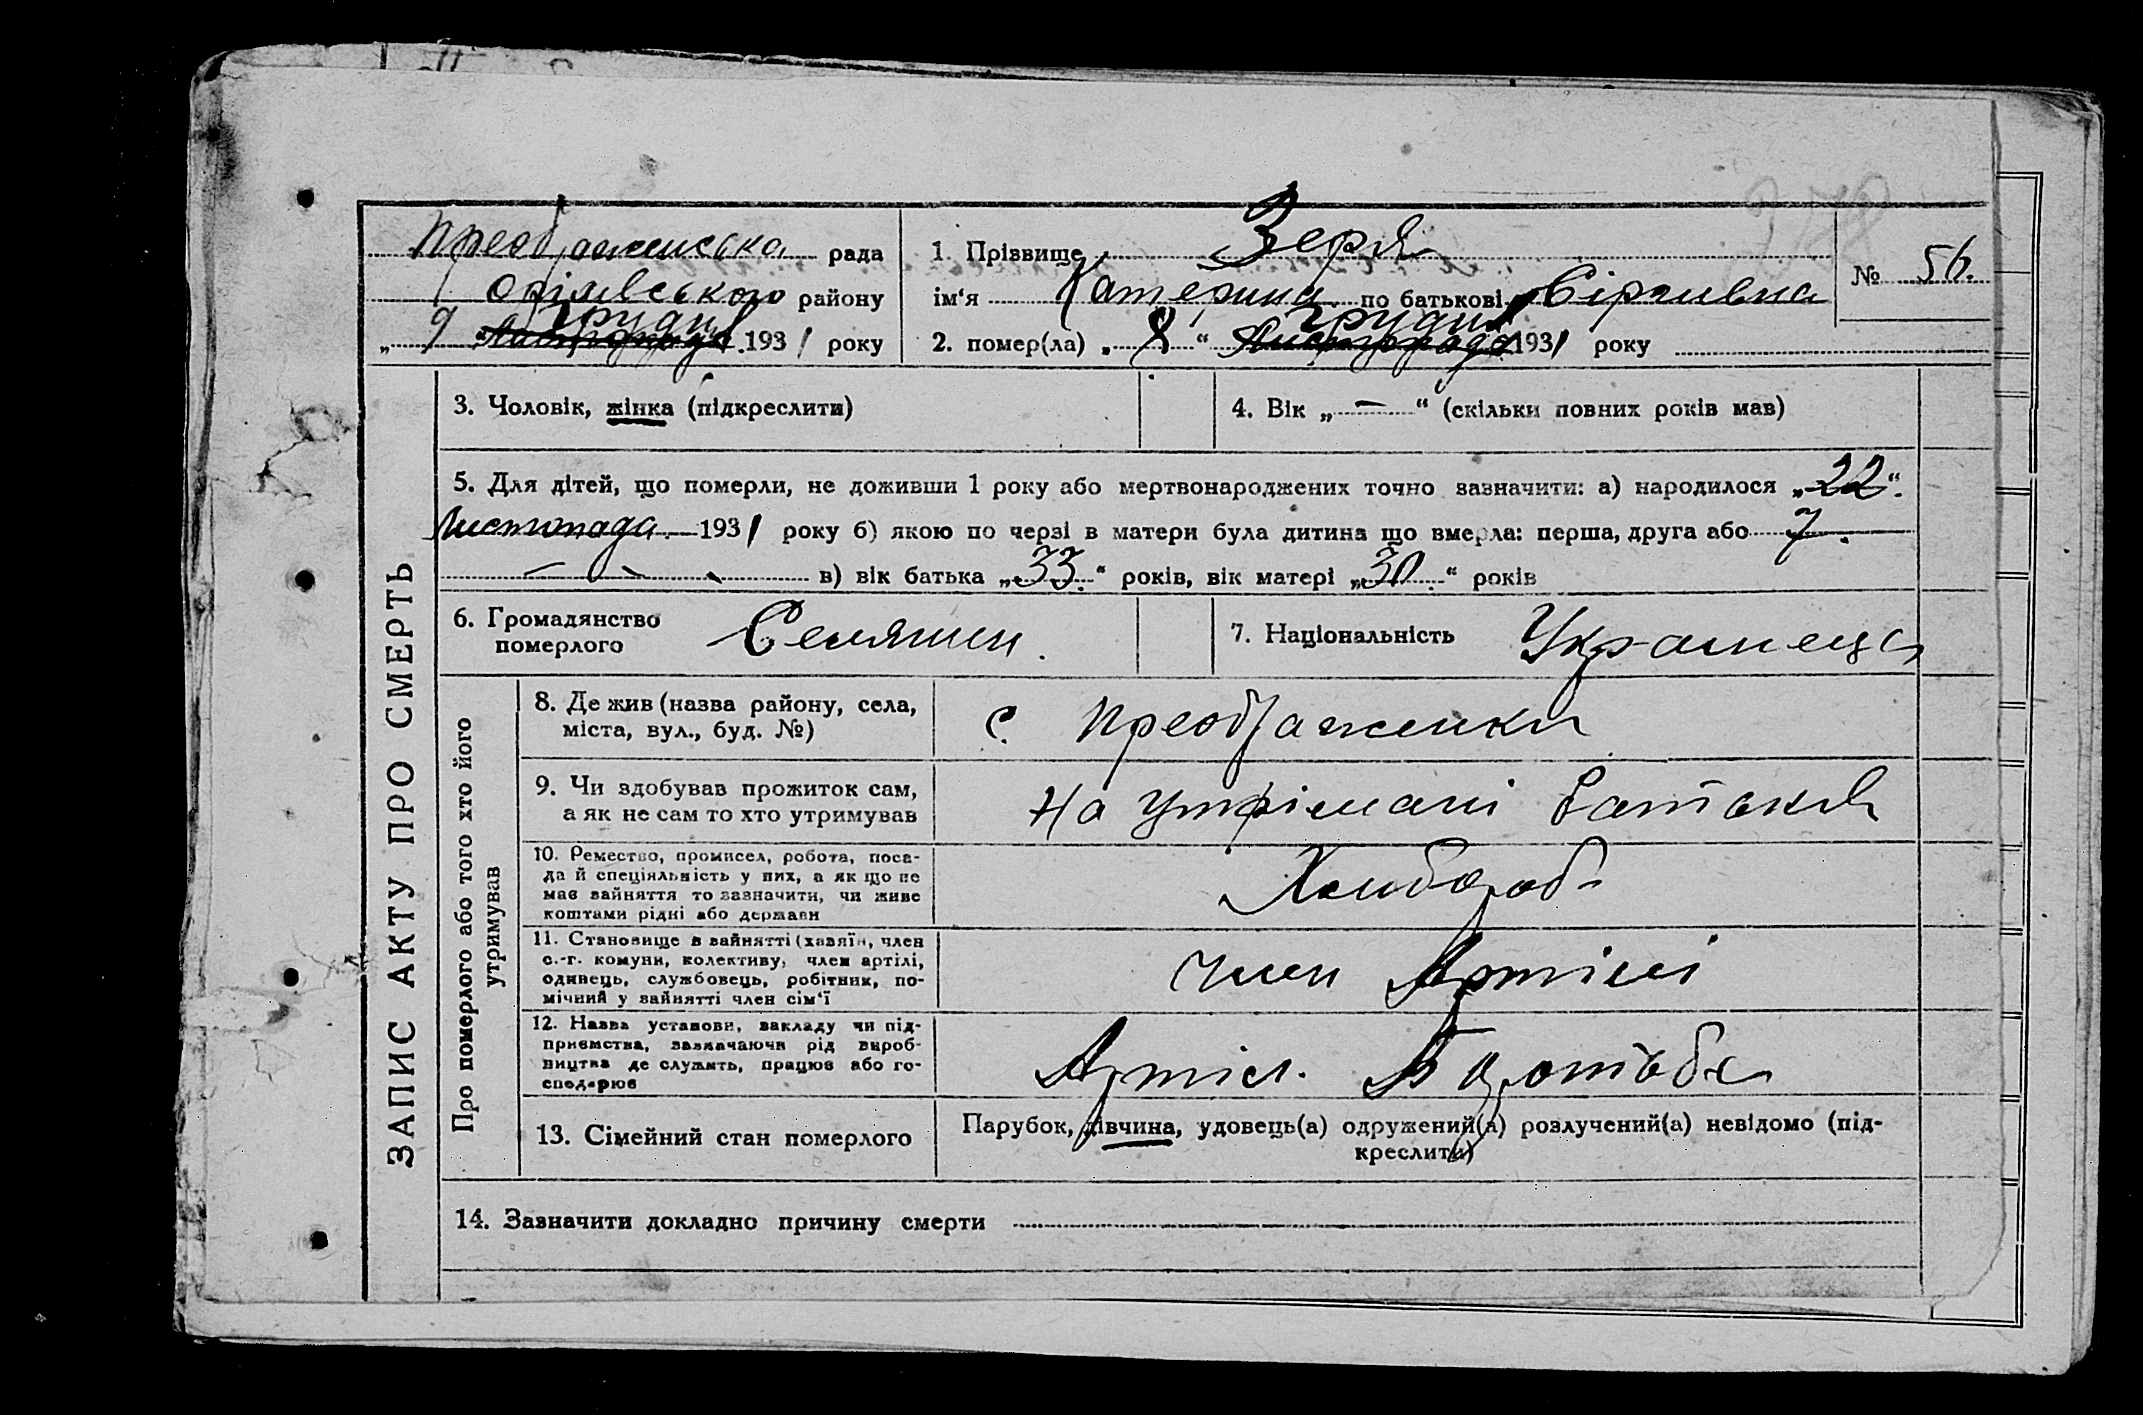 Преображенська рада
Оріхівського району
„ 9 " Грудня 1931 року
1. Прізвище Зеря
ім'я Катерина по батькові Сіргиевна
№ 56.
2. помер(ла) „ 8 " Грудня 1931 року
ЗАПИС АКТУ ПРО СМЕРТЬ
3. Чоловік, жінка (підкреслити)
4. Вік „ — " (скільки повних років мав)
5. Для дітей, що померли, не доживши 1 року або мертвонароджених точно зазначити: а) народилося „22".
Листопада 1931 року б) якою по черзі в матери була дитина що вмерла: перша, друга або 7.
в) вік батька „33." років, вік матері „30." років
6. Громадянство
померлого
Селянин.
7. Національність Украинець
Про померлого або того хто його
утримував
8. Де жив (назва району, села,
міста, вул., буд. №)
с. Преображенки
9. Чи здобував прожиток сам,
а як не сам то хто утримував
На утрімані батьків
10. Ремество, промисел, робота, поса-
да й спеціяльність у них, а як що не
має зайняття то зазначити, чи живе
коштами рідні або держави
Хлибороб
11. Становище в зайнятті (хазяїн, член
с.-г. комуни, колективу, член артілі,
одинець, службовець, робітник, по-
мічний у зайнятті член сім'ї
член Артілі
12. Назва установи, закладу чи під-
приємства, зазначаючи рід вироб-
ництва де служить, працює або го-
сподарює
Артіл. Боротьба
13. Сімейний стан померлого
Парубок, дівчина, удовець(а) одружений(а) розлучений(а) невідомо (під-
креслити)
14. Зазначити докладно причину смерти